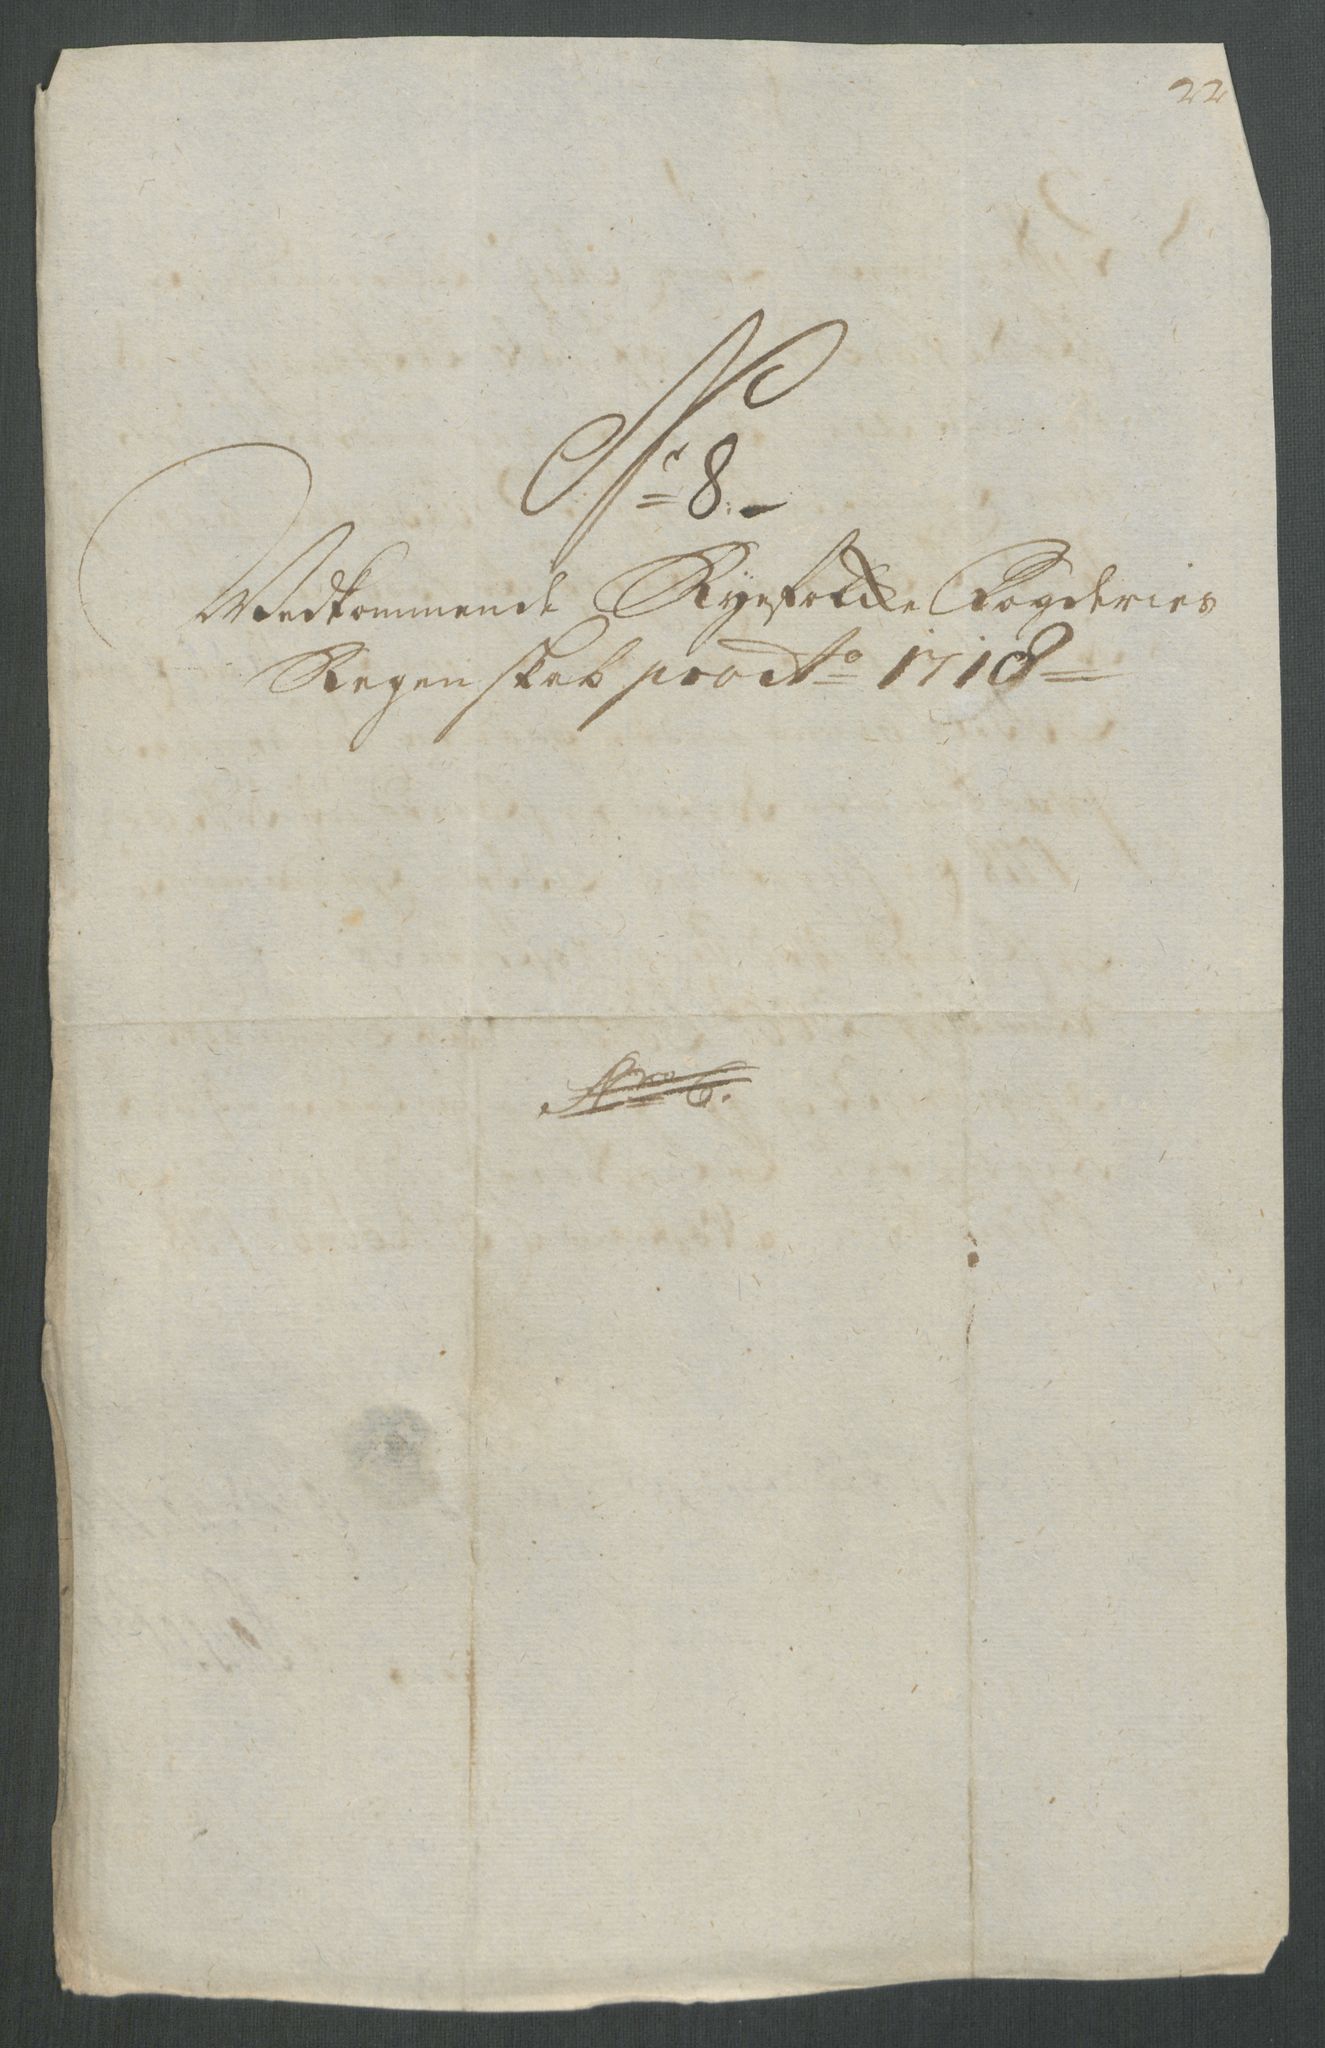 22
No 8
Vedkommende Ryefylcke Fogderies
Regenskab pro Ao 1718
No 6.